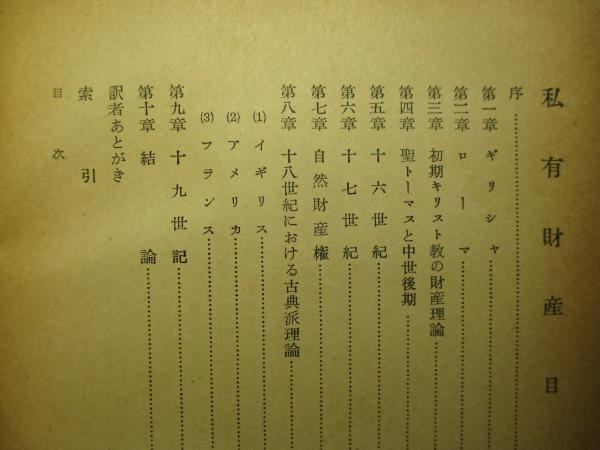 私有財産 目
序
第一章 ギリシャ
第二章 ローマ
第三章 初期キリスト教の財産理論
第四章 聖トーマスと中世後期
第五章 十六世紀
第六章 十七世紀
第七章 自然財産権
第八章 十八世紀における古典派理論
(1) イギリス
(2) アメリカ
(3) フランス
第九章 十九世記
第十章 結論
訳者あとがき
索引
目次